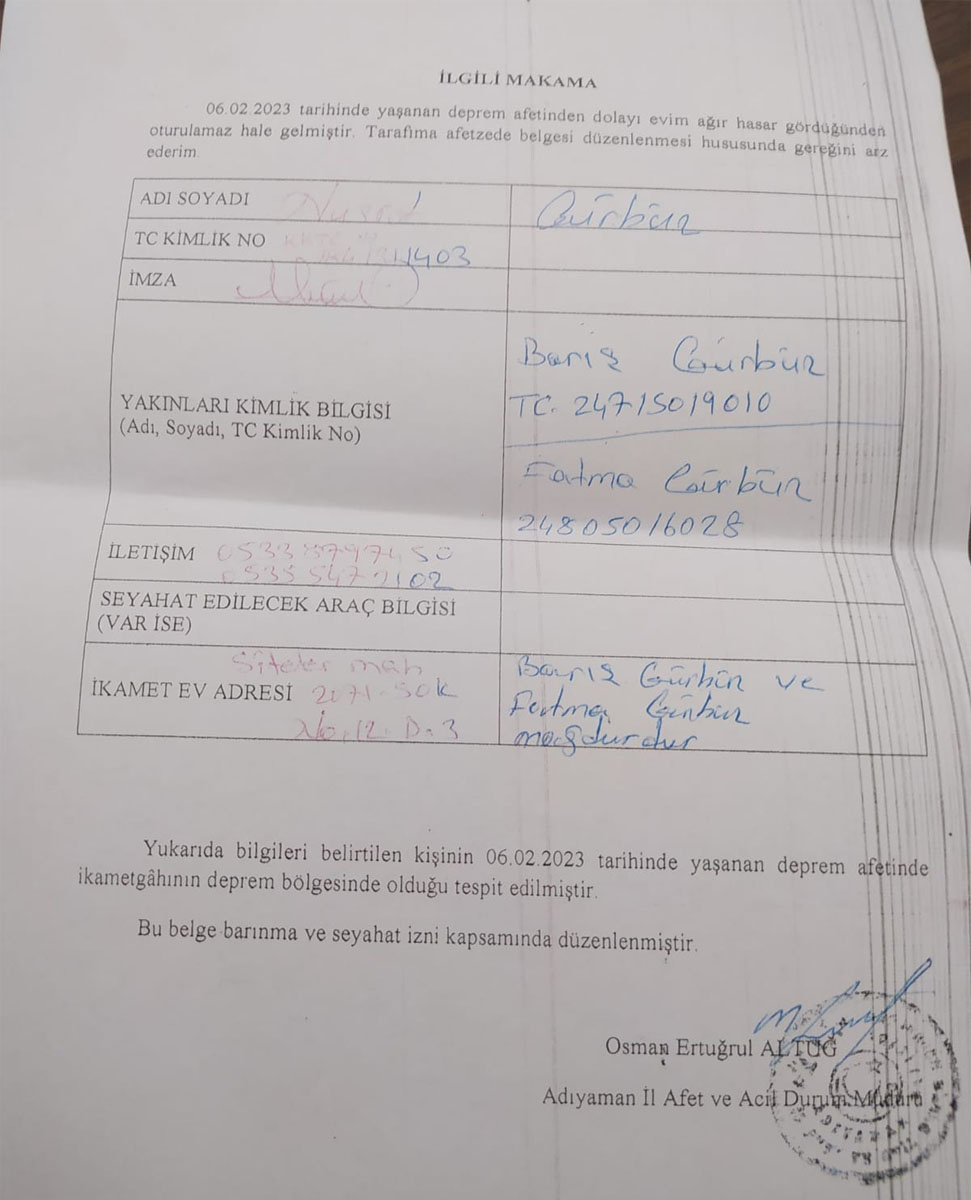 İLGİLİ MAKAMA
06.02.2023 tarihinde yaşanan deprem afetinden dolayı evim ağır hasar gördüğünden
oturulamaz hale gelmiştir. Tarafıma afetzede belgesi düzenlenmesi hususunda gereğini arz
ederim.
ADI SOYADI Gürbüz
TC KİMLİK NO
İMZA
Barış Gürbüz
TC. 24715019010
YAKINLARI KİMLİK BİLGİSİ
(Adı, Soyadı, TC Kimlik No)
Fatma Gürbüz
24805016028
İLETİŞİM
SEYAHAT EDİLECEK ARAÇ BİLGİSİ
(VAR İSE)
Siteler mah
İKAMET EV ADRESİ 2071. SOK
No. 12. D. 3
Barış Gürbüz ve
Fatma Gürbüz
mağdurdur
Yukarıda bilgileri belirtilen kişinin 06.02.2023 tarihinde yaşanan deprem afetinde
ikametgâhının deprem bölgesinde olduğu tespit edilmiştir.
Bu belge barınma ve seyahat izni kapsamında düzenlenmiştir.
Osman Ertuğrul ALTUĞ
Adıyaman İl Afet ve Acil Durum Müdürü